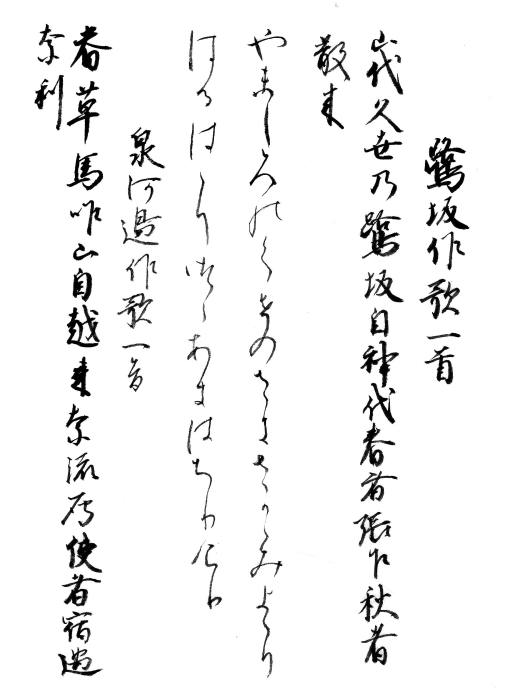 鷺坂作歌一首
山代久世乃鷺坂自神代春者張乍秋者
散来
やましろのくせのさきさかかみよゝり
はるはゝりつゝあきはちりけり
泉河邊作歌一首
春草馬咋山自越来奈流鴈使者宿過
奈利